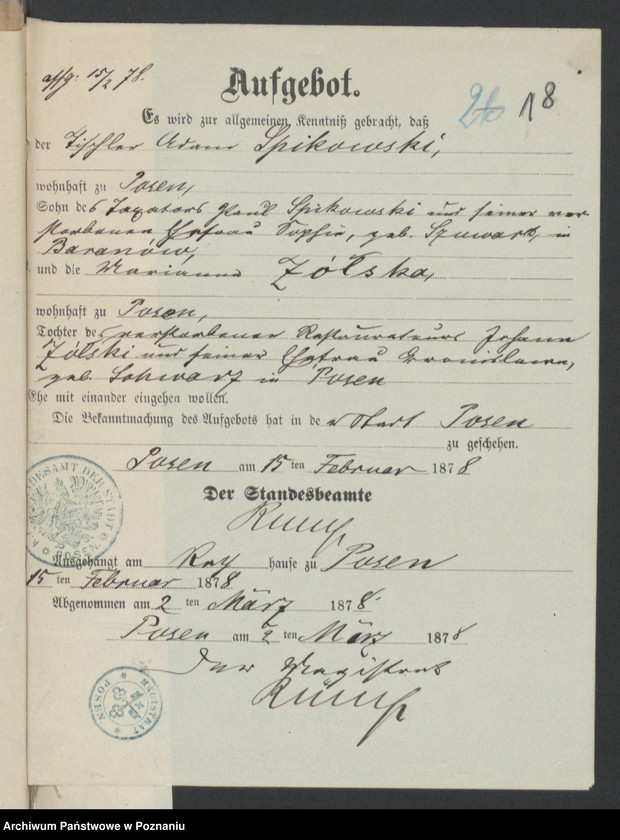 affg: 15/2 78.
Aufgebot.
26 18
Es wird zur allgemeinen Kenntniß gebracht, daß
der Tischler Adam Spikowski,
wohnhaft zu Posen,
Sohn des Taxators Paul Spikowski und seiner ver-
storbenen Ehefrau Sophie, geb. Szuwart, in
Baranów,
und die Marianna Zólska,
wohnhaft zu Posen,
Tochter des verstorbenen Restaurateurs Johann
Zólski und seiner Ehefrau Bronislawa,
geb. Schwarz in Posen
Ehe mit einander eingehen wollen.
Die Bekanntmachung des Aufgebots hat in der Stadt Posen
zu geschehen.
Posen am 15 ten Februar 1878
Der Standesbeamte
STANDESAMT DER STADT POSEN
Ausgehängt am Rathhause zu Posen
15 ten Februar 1878
Abgenommen am 2 ten März 1878
Posen am 2 ten März 1878
Der Magistrat
MAGISTRAT POSEN
Archiwum Państwowe w Poznaniu